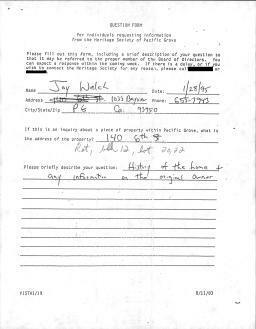 QUESTION FORM
For individuals requesting information
from the Heritage Society of Pacific Grove
Please fill out this form, including a brief description of your question so
that it may be referred to the proper member of the Board of Directors. You
can expect a response within the coming week. If there is a delay, or if you
wish to contact the Heritage Society for any reason, please call or
Name Jay Welch Date: 1/28/95
Address 1033 Phone: 655-
City/State/Zip P G Ca. 93950
If this is an inquiry about a piece of property within Pacific Grove, what is
the address of the property? 140 6th St
lot 20, 22
Please briefly describe your question: History of the home +
any information on the original owner